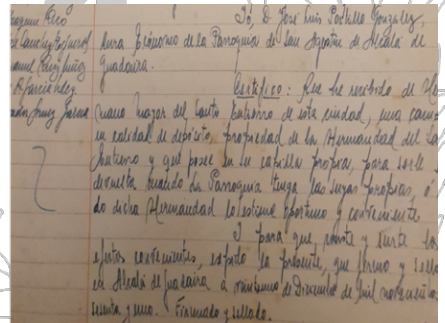 Joaquín Rico
Sánchez
Manuel Ruiz Muñoz
García
Yo, D. José Luis Portillo González,
Cura Ecónomo de la Parroquia de San Agustín de Alcalá de
Guadaira.
Certifico: Que he recibido de
mano mayor del Santo Entierro de esta ciudad, una
en calidad de depósito, propiedad de la Hermandad del
Entierro y que posee en su capilla propia, para serle
devuelta cuando la Parroquia tenga las suyas propias, ó
do dicha Hermandad lo estime oportuno y conveniente.
Y para que, conste y surta los
efectos convenientes, expido la presente, que firmo y sello
en Alcalá de Guadaira a veintiuno de Diciembre de mil novecientos
sesenta y uno. Firmado y sellado.